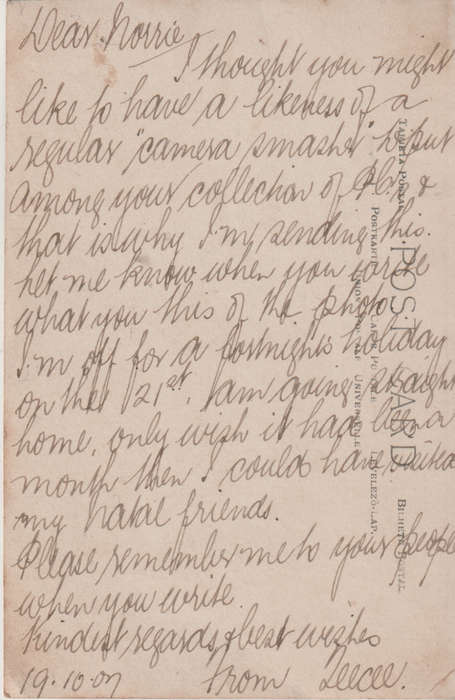 Dear Norrie
I thought you might
like to have a likeness of a
regular "camera smasher" to put
among your collection of &
that is why I'm sending this.
Let me know when you write
what you this of the photo.
I'm off for a fortnights holiday
on the 21st. I am going straight
home, only wish it had been a
month then I could have visited
my natal friends.
Please remember me to your people
when you write.
Kindest regards & best wishes
19.10.07 From Leecee.
POST CARD
TARJETA POSTAL
POSTKARTE
CARTE POSTALE
UNION POSTALE UNIVERSELLE
LEVELEZÖ-LAP.
BILHETE POSTAL